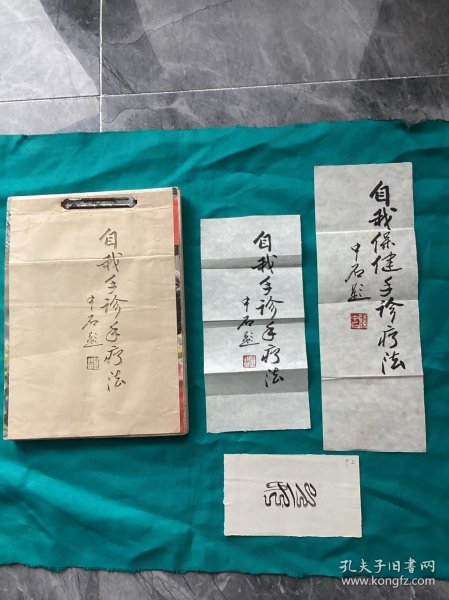 自我手诊手疗法
中石题
自我手诊手疗法
中石题
自我保健手诊疗法
中石题
孔夫子旧书网
www.kongfz.com